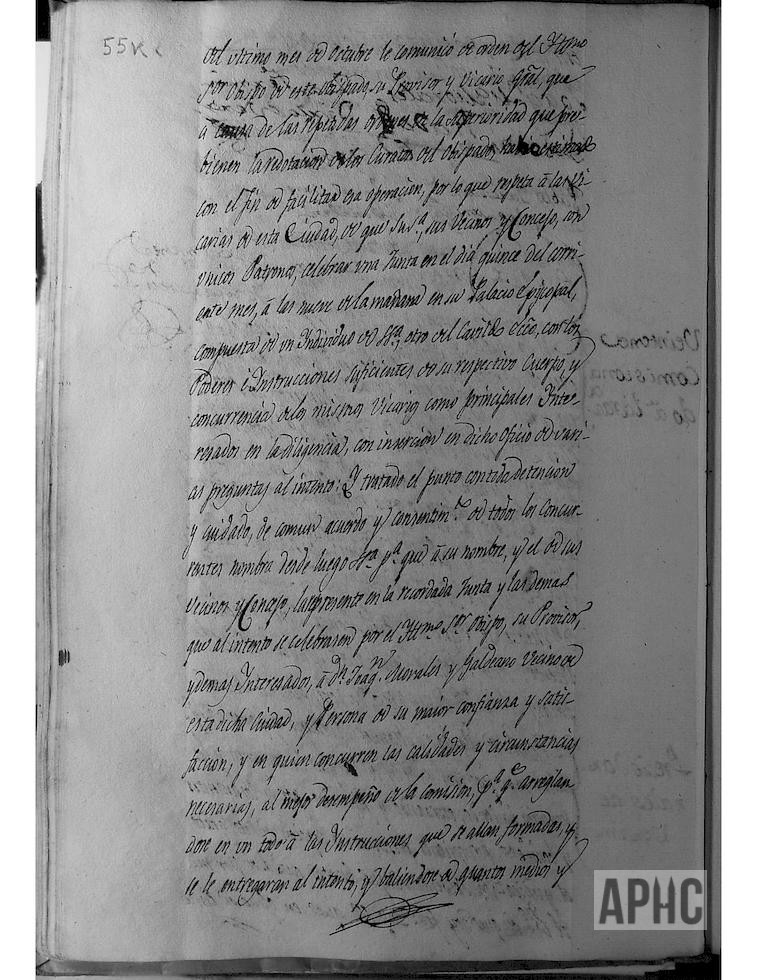 55v
del ultimo mes de octubre le comunicó de orden del Illmo
Sor Obispo de este obispado, su Provisor y Vicario Gral, que
a causa de las repetidas ordenes de la superioridad que pre-
bienen la redotacion de los Curatos del obispado,
con el fin de facilitar esa operacion, por lo que respeta â las Vi-
carias de esta Ciudad, de que Sus.ª, sus Vecinos y Concejo, son
vnicos Patronos, celebrar vna Junta en el dia quince del corri-
ente mes, â las nueve de la mañana en su Palacio episcopal,
compuesta de vn Individuo de SSª, otro del Cavildo ecco, con los
Poderes é Instrucciones suficientes de su respectivo Cuerpo, y
concurrencia de los mismos Vicarios como principales Inte-
resados en la diligencia, con insercion en dicho oficio de vari-
as preguntas al intento: Y tratado el punto con toda detencion
y cuidado, de comun acuerdo y consentimto de todos los concur-
rentes nombra desde luego Sra pª que â su nombre, y el de sus
Vecinos y Concejo, la represente en la recordada Junta y las demas
que al intento se celebrasen por el Illmo Sor Obispo, su Provisor,
y demas Interesados, â Dn Joaqn Morales y Galdeano Vecino de
esta dicha Ciudad, y Persona de su maior confianza y satis-
faccion, y en quien concurren las calidades y circunstancias
necesarias, al mejor desempeño de la comision, pª qe arreglan
dose en vn todo â las Instrucciones que se allan formadas, y
se le entregarán al intento, y baliendose de quantos medios y
APHC